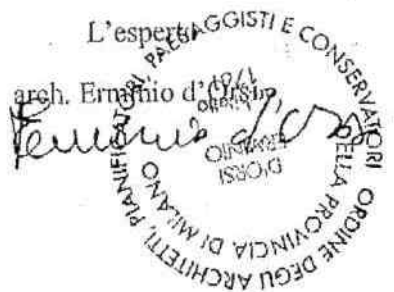 L'esperto
arch. Erminio d'Orsi
Erminio d'Orsi
ORDINE DEGLI ARCHITETTI, PIANIFICATORI, PAESAGGISTI E CONSERVATORI
DELLA PROVINCIA DI MILANO
D'ORSI
ERMINIO